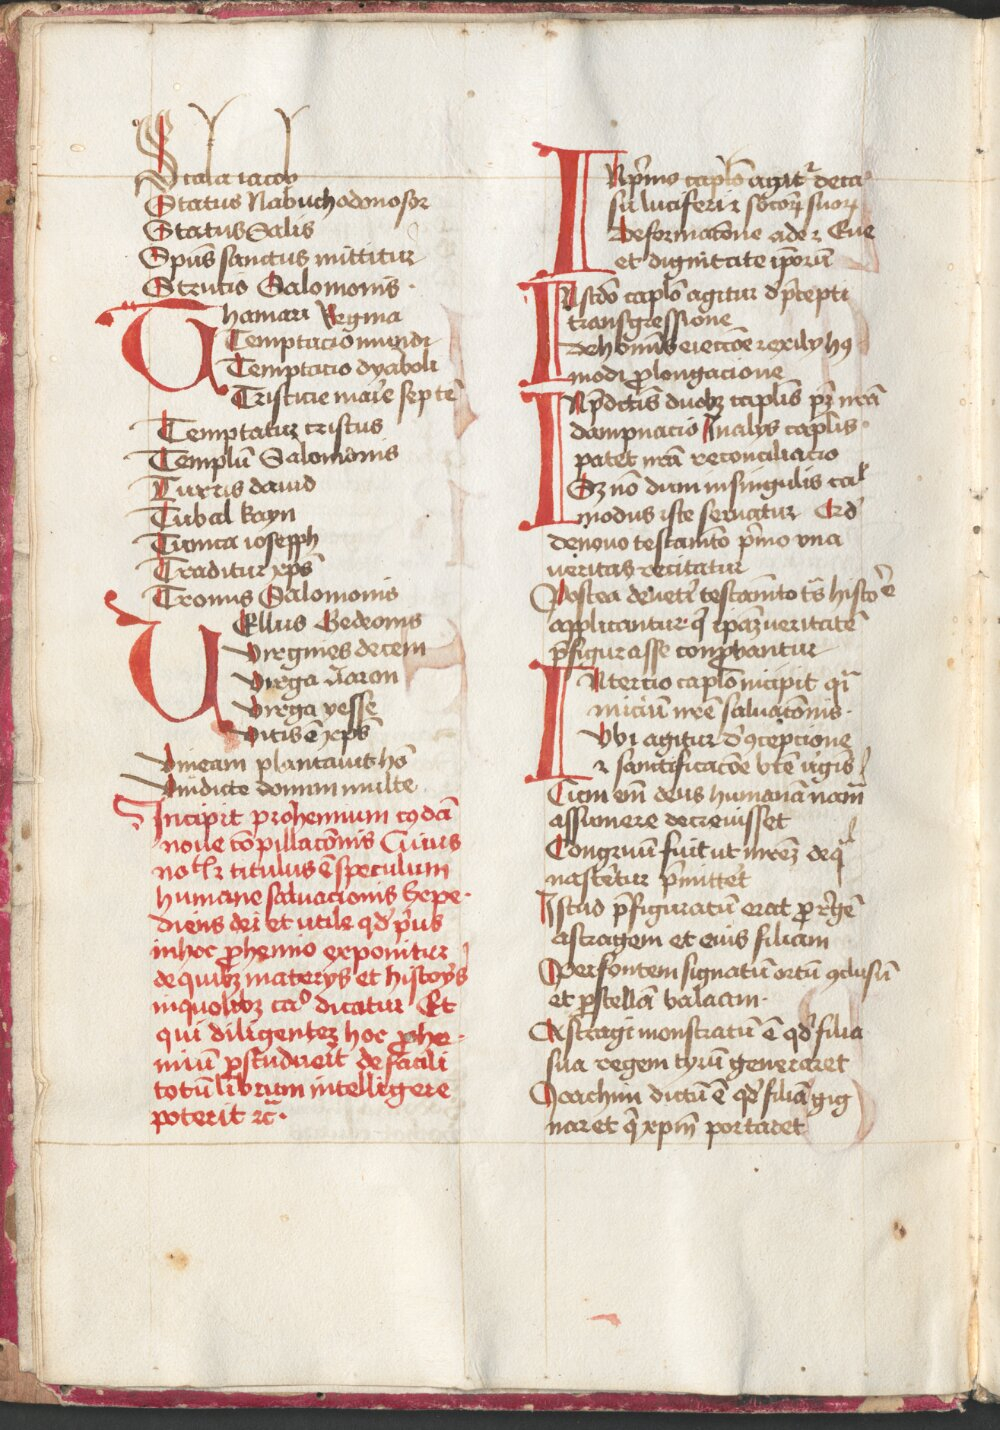 Scala iacob
Status Nabuchodonosor
Status Salis
Spūs sanctus mittitur
Structio Salomonis
Thamari Regina
Temptacio mundi
Temptacio dyaboli
Tristicie marie septē
Temptatur cristus
Templū Salomonis
Turris dauid
Tubal kayn
Tunica ioseph
Traditur xp̄s
Tronus Salomonis
Vellus Gedeonis
Virgines decem
Virga Aaron
Virga yesse
Vitis ē xp̄s
Vineam plantauit hō
Vindicte domini multe
Incipit prohemium cuiusdā
noue cōpillacōnis Cuius
titulus ē speculum
humane saluacionis Expe-
diens et utile qd' p'us
in hoc ꝓhemio exponitur
de quibꝫ materys et historys
in quolibꝫ caº dicatur Et
qui diligenter hoc ꝓhe-
miū ꝑstuduerit de facili
totū librum intelligere
poterit ⁊c̄.
IN p'mo capl'o agitr̃ de ca-
su luciferi ⁊ socioꝝ suoꝝ
De formacōne ade ⁊ Eue
et dignitate ip̄orū
In scd̄o capl'o agitur d' p'cepti
transgressione
De hōmīs eieccōe ⁊ exily hꝰ
modi ꝓlongacione
IN p̄dc̄tis duobꝫ capl'is pꝫ nr̄a
dampnacio In alys capl'is
patet nr̄a reconciliacio
Sꝫ nō dum in singulis
modus iste seruatur
de nouo testamēto p'mo vna
veritas recitatur
Postea de veteri testamēto tēs histoē
applicantur q̄ ip̄aꝫ veritatē
p̄figurasse comꝓbantur
IN tercio capl'o incipit
iniciū nr̄e saluacōnis
Vbi agitur d' ꝯcepcione
⁊ sanctificacōe btē v̄gīs
Cum em̄ deus humanā nām
assumere decreuisset
Congruū fuit ut mr̄eꝫ de q̄
nasceretur p'mitteret
Istud p̄figuratū erat ꝑ regē
astragem et eius filiam
Per fontem signatū ortū ꝯclusū
et ꝑ stellā balaam
Astragi monstratū ē qd' filia
sua regem cyrū generaret
Joachim dictū ē qd' filiā gig
naret q̄ xp̄m portaret